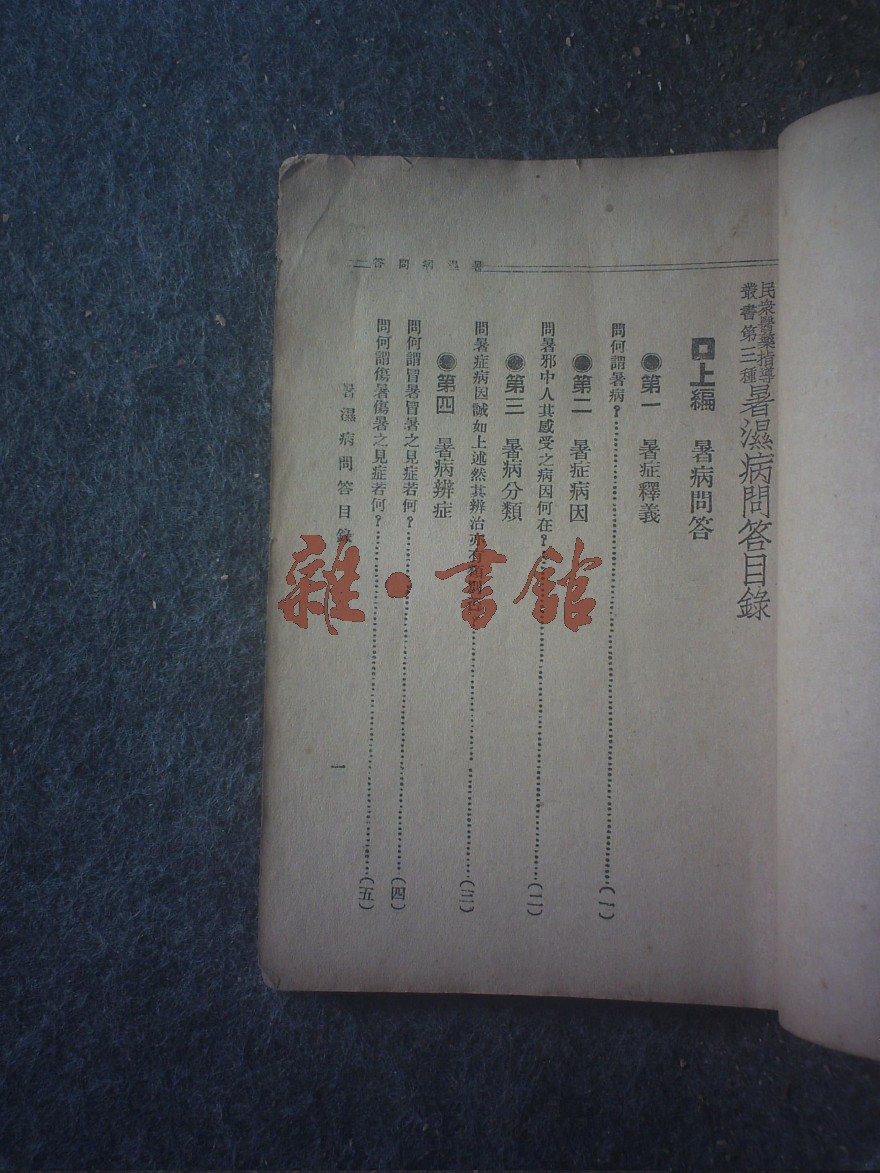 民衆醫藥指導
叢書第三種
暑濕病問答目錄
上編 暑病問答
第一 暑症釋義
問何謂暑病?……(一)
第二 暑症病因
問暑邪中人其感受之病因何在?……(二)
第三 暑病分類
問暑症病因誠如上述然其辨治亦有……(三)
第四 暑病辨症
問何謂冒暑冒暑之見症若何?……(四)
問何謂傷暑傷暑之見症若何?……(五)
暑濕病問答目錄
一
暑濕病問答
雜·書館